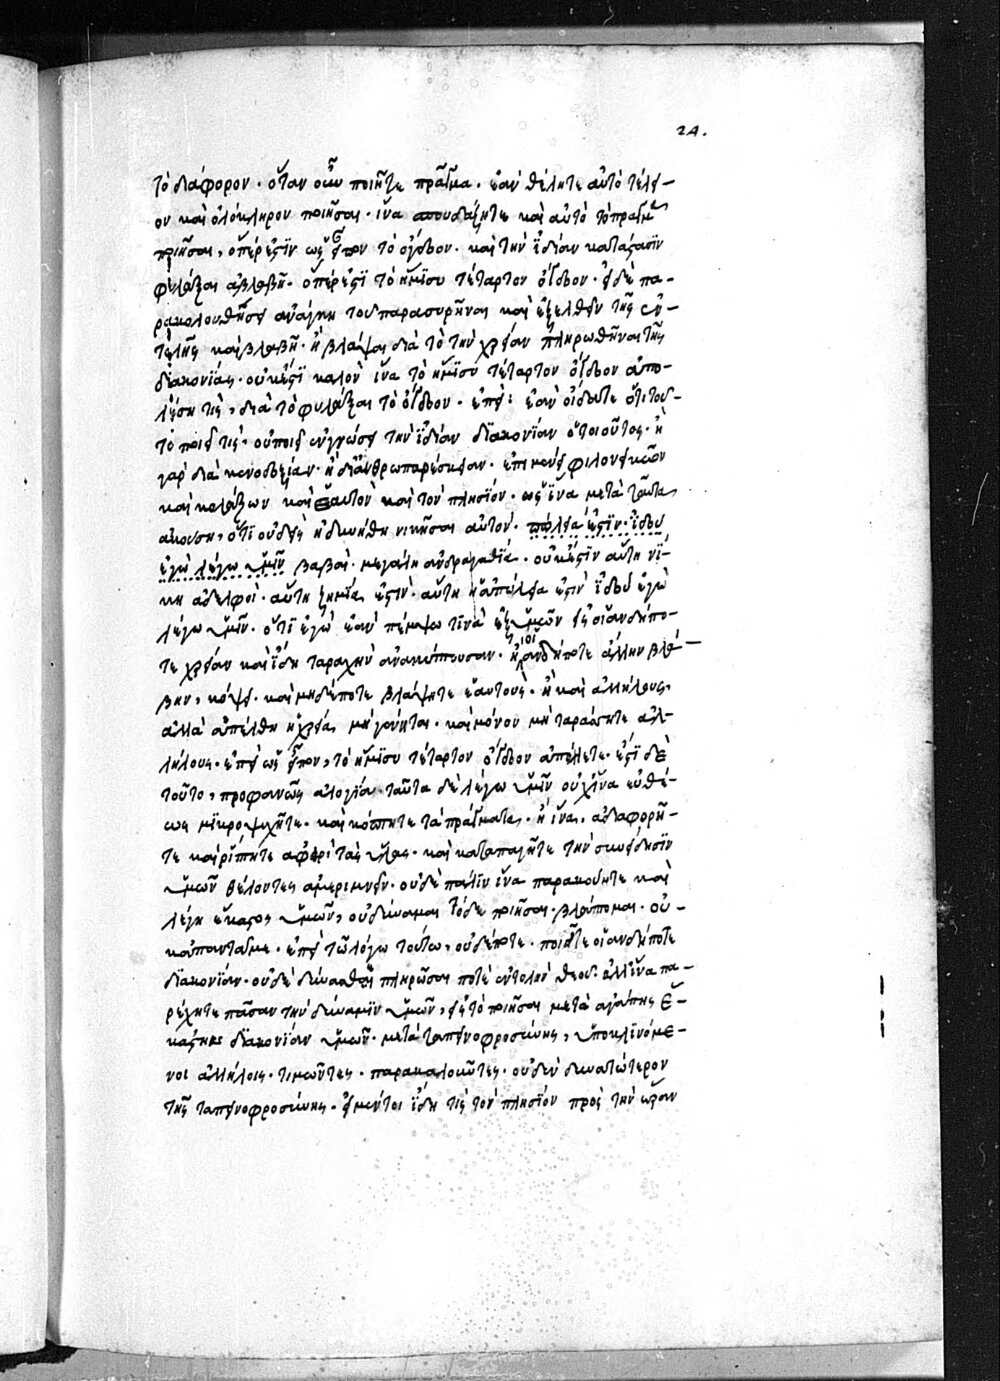 24.
τὸ διάφορον· ὅταν οὖν ποιῆτε πρᾶγμα· ἐὰν θέλητε αὐτὸ τέλει-
ον καὶ ὁλόκληρον ποιῆσαι· ἵνα σπουδάζητε καὶ αὐτὸ τὸ πρᾶγμα
ποιῆσαι, ὅπερ ἐστὶν ὡς εἶπον τὸ ὄγδοον· καὶ τὴν ἰδίαν κατάστασιν
φυλάξαι ἀβλαβῆ· ὅπερ ἐστὶ τὸ ἥμισυ τέταρτον ὄγδοον· εἰ δὲ πα-
ρακολουθήσει ἀνάγκη τοῦ παρασυρῆναι καὶ ἐξελθεῖν τῆς ἐν-
τολῆς καὶ βλαβῆ· ἢ βλάψαι διὰ τὸ τὴν χρείαν πληρωθῆναι τῆς
διακονίας· οὐκ ἔστι καλὸν ἵνα τὸ ἥμισυ τέταρτον ὄγδοον ἀπο-
λέσῃ τις, διὰ τὸ φυλάξαι τὸ ὄγδοον· ἐπεὶ ἐὰν οἴδατε ὅτι τοῦ-
το ποιεῖ τις· οὐ ποιεῖ ἐν γνώσει τὴν ἰδίαν διακονίαν ὁ τοιοῦτος· ἢ
γὰρ διὰ κενοδοξίαν· ἢ δι' ἀνθρωπαρέσκειαν· ἐπιμένει φιλονεικῶν
καὶ κολάζων καὶ ἑαυτὸν καὶ τὸν πλησίον· ὡς ἵνα μετὰ ταῦτα
ἀκούσῃ, ὅτι οὐδεὶς ἠδυνήθη νικῆσαι αὐτόν· ἀπώλεια ἐστὶν· ἰδοὺ
ἐγὼ λέγω ὑμῖν βαβαί· μεγάλη ἀνδραγαθία· οὐκ ἔστιν αὕτη νί-
κη ἀδελφοί· αὕτη ζημία ἐστίν· αὕτη ἡ ἀπώλεια ἐστὶν ἰδοὺ ἐγὼ
λέγω ὑμῖν· ὅτι ἐγὼ ἐὰν πέμψω τινὰ ἐξ ὑμῶν εἰς οἱανδήπο-
τε χρείαν καὶ ἴδῃ ταραχὴν ἀνακύπτουσαν· ἢ οἱανδήποτε ἄλλην βλά-
βην, κόψει· καὶ μηδέποτε βλάψητε ἑαυτούς· ἢ καὶ ἀλλήλους,
ἀλλὰ ἀπέλθῃ ἡ χρεία, μὴ γένηται· καὶ μόνον μὴ ταράσσητε ἀλ-
λήλους· ἐπεὶ ὡς εἶπον, τὸ ἥμισυ τέταρτον ὄγδοον ἀπόλλετε· ἔστι δὲ
τοῦτο, προφανῶς ἀλογία· ταῦτα δὲ λέγω ὑμῖν οὐχ ἵνα εὐθέ-
ως μικροψυχῆτε· καὶ κόπτητε τὰ πράγματα· ἢ ἵνα, ἀδιαφορῆ-
τε καὶ ῥίπτητε ἀφ' ὑμᾶς· καὶ καταπατῆτε τὴν συνείδησιν
ὑμῶν θέλοντες ἀμεριμνεῖν· οὐδὲ πάλιν ἵνα παρακούητε καὶ
λέγῃ ἕκαστος ὑμῶν, οὐ δύναμαι τόδε ποιῆσαι· βλάπτομαι· οὐ-
κ ἀπαντᾷ με· ἐπεὶ τῷ λόγῳ τούτῳ, οὐδέποτε· ποιεῖτε οἱανδήποτε
διακονίαν· οὐδὲ δύνασθαι πληρῶσαι ποτὲ ἐντολὴν θεοῦ· ἀλλ' ἵνα πα-
ρέχητε πᾶσαν τὴν δύναμιν ὑμῶν, εἰς τὸ ποιῆσαι μετὰ ἀγάπης ἑ-
κάστην διακονίαν ὑμῶν· μετὰ ταπεινοφροσύνης, ὑποκλινόμε-
νοι ἀλλήλοις· τιμῶντες· παρακαλοῦντες· οὐδὲν δυνατώτερον
τῆς ταπεινοφροσύνης· εἰ μέντοι ἴδῃ τις τὸν πλησίον πρὸς τὴν ὥραν